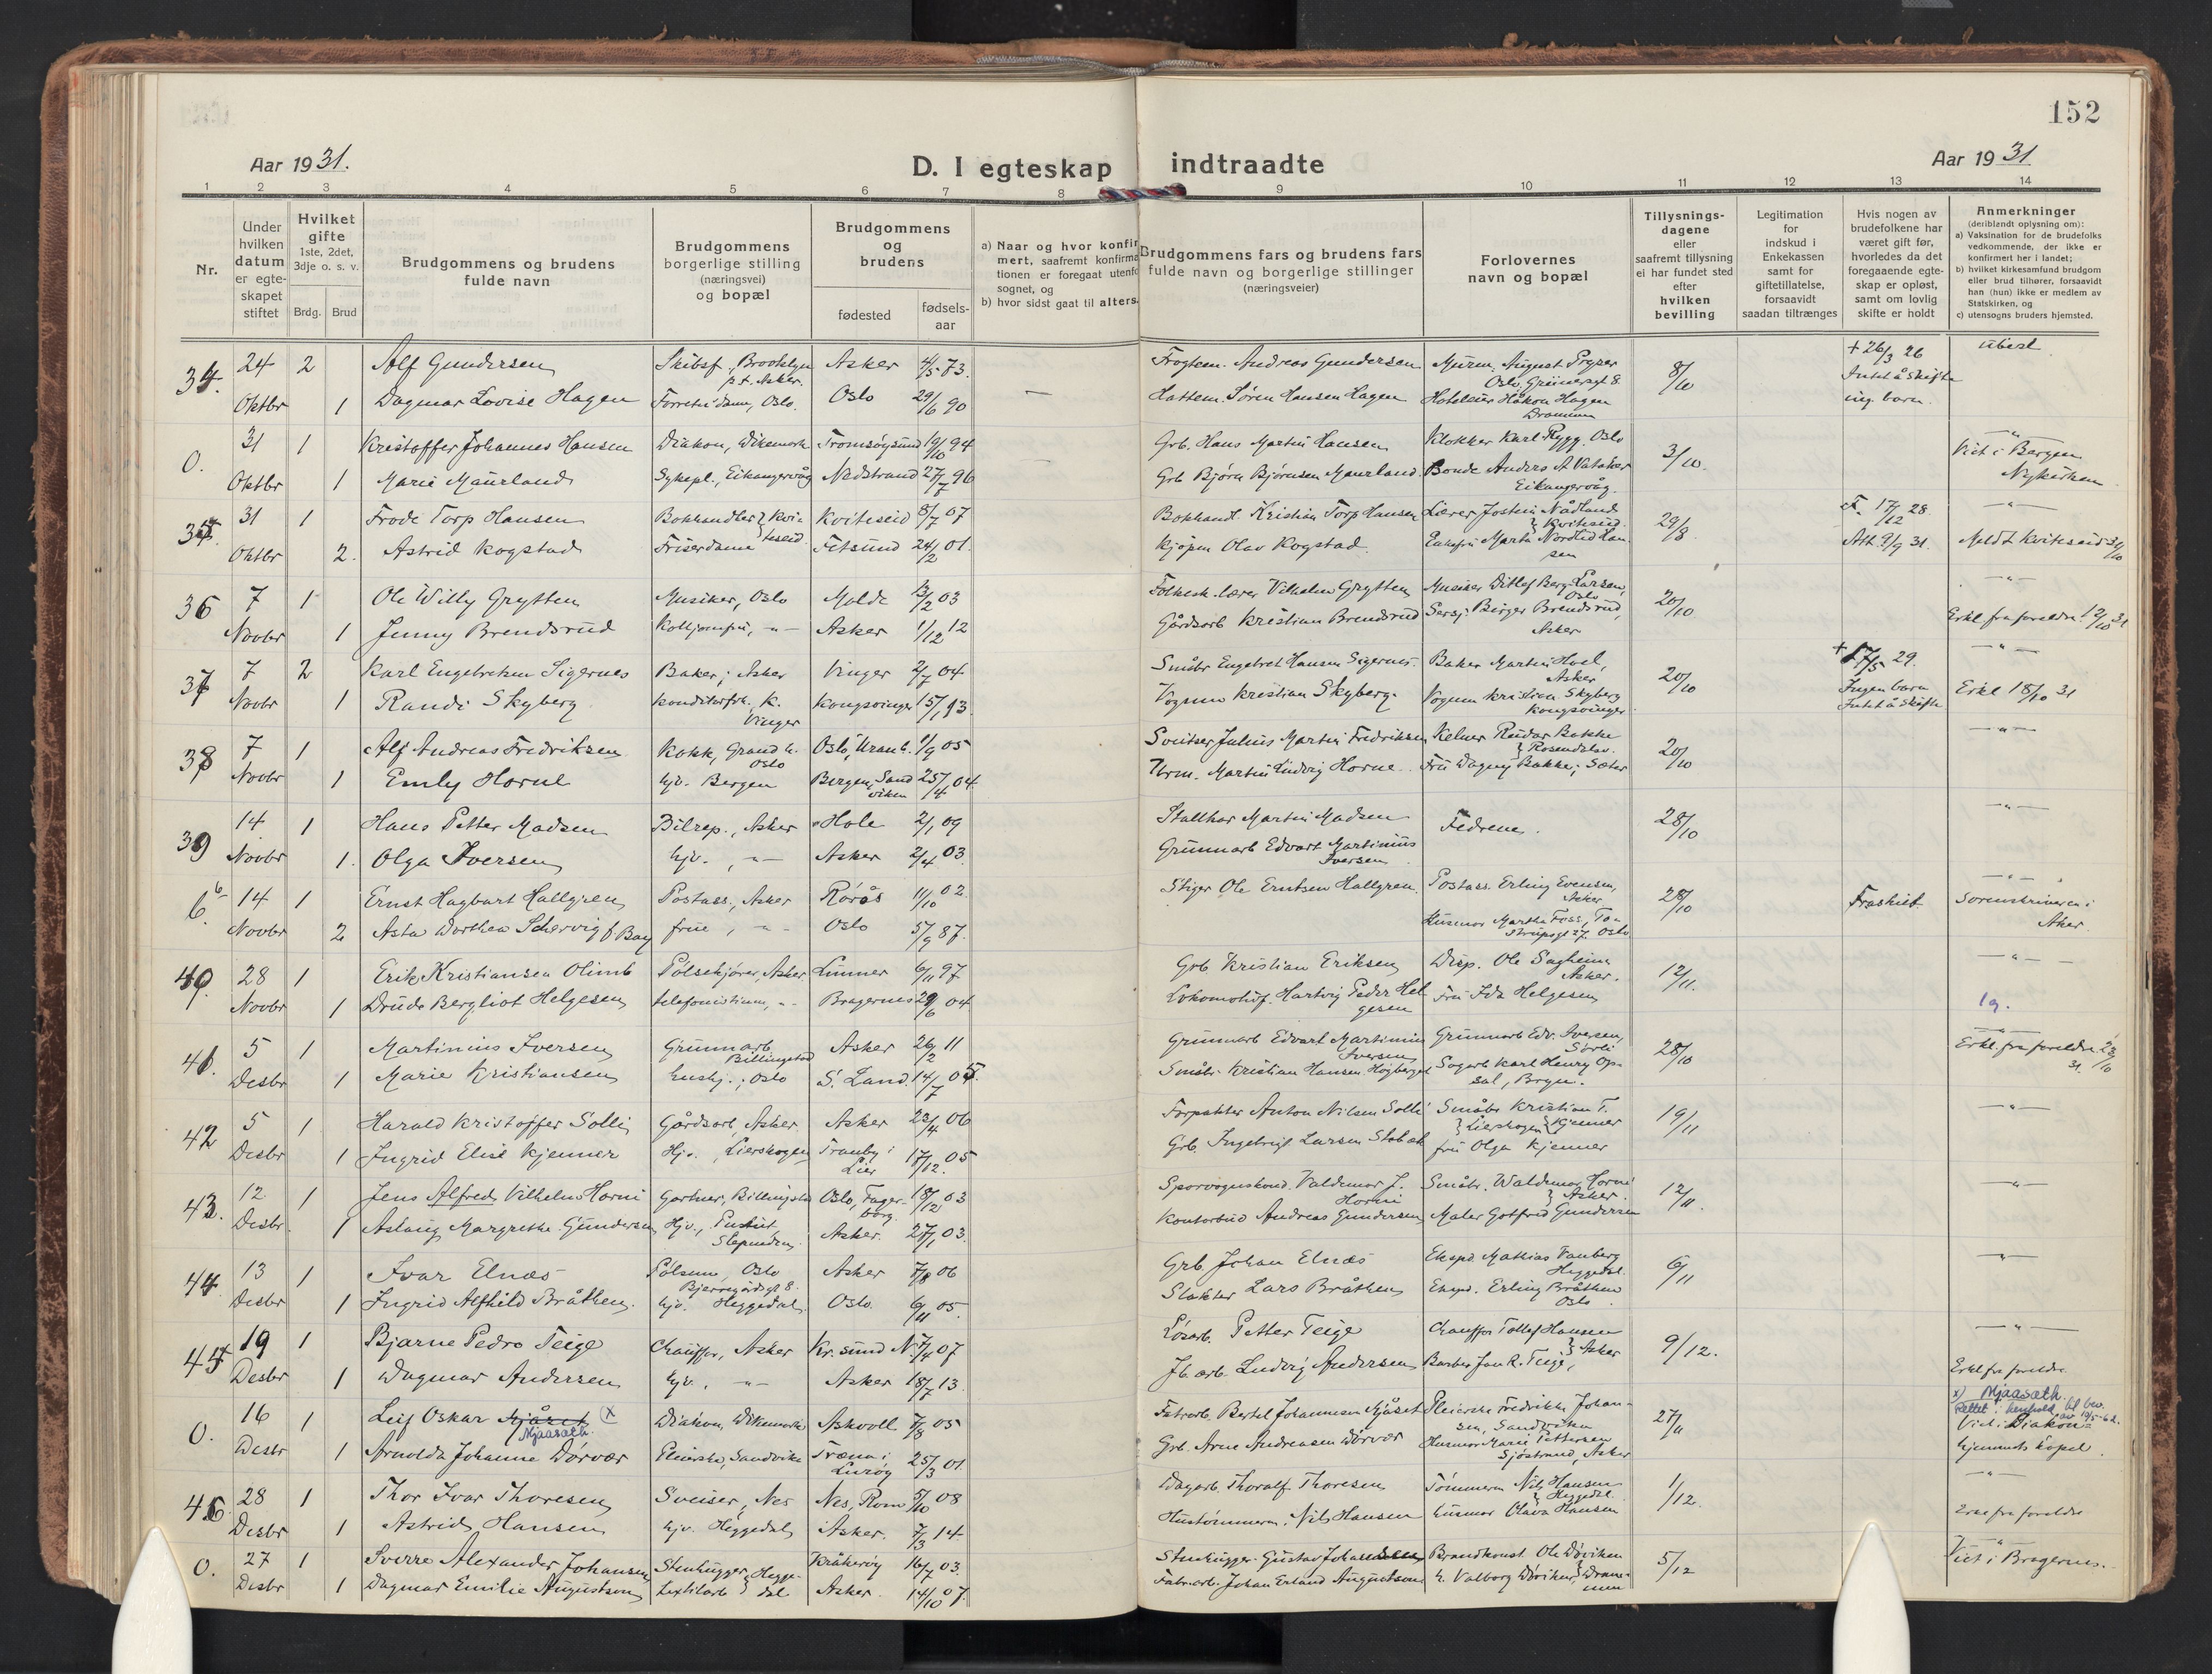 152
Aar 1931.
D. I egteskap indtraadte
Aar 1931
1 2 3 4 5 6 7 8 9 10 11 12 13 14
Nr.
Under hvilken datum er egteskapet stiftet
Hvilket gifte 1ste, 2det, 3dje o. s. v.
Brdg. Brud
Brudgommens og brudens fulde navn
Brudgommens borgerlige stilling (næringsvei) og bopæl
Brudgommens og brudens
fødested fødsels-aar
a) Naar og hvor konfir
mert, saafremt konfirma
tionen er foregaat utenfo
sognet, og
b) hvor sidst gaat til alters.
Brudgommens fars og brudens fars fulde navn og borgerlige stillinger (næringsveier)
Forlovernes navn og bopæl
Tillysnings-dagene eller saafremt tillysning ei har fundet sted efter hvilken bevilling
Legitimation for indskud i Enkekassen samt for giftetillatelse, forsaavidt saadan tiltrænges
Hvis nogen av brudefolkene har været gift før, hvorledes da det foregaaende egteskap er opløst, samt om lovlig skifte er holdt
Anmerkninger
(deriblandt oplysning om):
a) Vaksination for de brudefolks vedkommende, der ikke er konfirmert her i landet;
b) hvilket kirkesamfund brudgom eller brud tilhører, forsaavidt han (hun) ikke er medlem av Statskirken, og
c) utensogns bruders hjemsted.
34. 24 2 Alf Gundersen Skibsf., Brooklyn p.t. Asker. Asker 4/5 73. Andreas Gundersen Murm. August Pryser Oslo, Grünersgt 8 8/10 + 26/3 26 Intet å skifte ing. barn. ubert
Oktbr 1 Dagmar Lovise Hagen Oslo. Oslo 29/6 90 — Hattem. Søren Hansen Hagen Hakon Hagen Drammen
0. 31 1 Kristoffer Johannes Hansen Diakon, Dikemark Tromsøysund 19/10 94 Grb. Hans Martin Hansen Klokker Karl Rygg, Oslo 3/10. — " —
Oktbr 1 Marie Maurland Sykepl., Eikangervåg Nedstrand 27/7 96 Grb Bjørn Bjørnsen Maurland. Bonde Anders A. Vatsker Eikangervåg. Viet i Bergen Nykirken
35. 31 1 Frode Torp Hansen Bokhandler } Kviteseid Kviteseid 8/7 07 Bokhandl. Kristian Torp Hansen Lærer Jostein Nådland } Kviteseid. 29/8 F. 17/12 28. — " —
Oktbr 2. Astrid Kogstad Friserdame Fetsund 24/2 01. Kjøpm Olav Kogstad Marta Nordlid Hansen Att. 9/9 31. Meldt Kviteseid 31/10
36 7 1 Ole Willy Grytten Musiker, Oslo Molde 13/2 03 Folkesk. lærer Vilhelm Grytten Musiker Ditlef Berg-Larsen, Oslo 20/10 — " —
Novbr 1 Jenny Brendsrud — " — Asker 1/12 12 Gårdsarb Kristian Brendsrud Sersj. Birger Brendsrud, Asker Erkl fra foreldr. 12/10 31
37 7 2 Karl Engebretsen Sigernes Baker, Asker Vinger 2/7 04 Småbr Engebret Hansen Sigernes. Baker Martin Hoel, Asker 20/10 + 17/5 29. — " —
Novbr 1 Randi Skyberg Konditorfrk. K. Vinger Kongsvinger 15/1 93. Vognm Kristian Skyberg. Vognm Kristian Skyberg Kongsvinger Ingen barn Intet å skifte Erkl 18/10 31
38 7 1 Alf Andreas Fredriksen Kokk, Grand h. Oslo Oslo, 1/9 05 Julius Martin Fredriksen Kelner Reidar Bakke } 20/10 — " —
Novbr 1 Emly Horne hjv. Bergen Bergen, Sandviken 25/4 04. Urm. Martin Ludvig Horne. Fru Dagny Bakke; Sæter
39 14. 1 Hans Petter Madsen Bilrep., Asker Hole 2/1 09 Martin Madsen Fedrene. 28/10 — " —
Novbr 1. Olga Iversen hjv., — " — Asker 2/4 03. Grunnarb Edvart Martinius Iversen
6. 14 1 Ernst Hagbart Hallgren Postass., Asker Rørås 11/10 02. Stiger Ole Erntsen Hallgren. Postass. Erling Evensen, Asker 28/10 Fraskilt — " —
Novbr 2 Asta Dorthea Schervig f Bay frue, — " — Oslo 5/9 87. Husmor Martha Foss, Oslo Sorenskriveren i Aker
40. 28 1 Erik Kristiansen Olimb Pølsekjører, Asker Lunner 6/11 97 Grb Kristian Eriksen Disp. Ole Sagheim Asker. 12/11. — " —
Novbr 1 Drude Bergliot Helgesen telefonistinne, — " — Bragernes 29/6 04 Lokomotivf. Hartvig Peder Helgesen Fru Ida Helgesen
41. 5 1 Martinius Iversen Grunnarb. Billingstad Asker 26/2 11 Grunnarb Edvart Martinius Iversen Grunnarb Edv. Iversen, 28/10 — " —
Desbr 1 Marie Kristiansen hushj.; Oslo S. Land. 14/7 05. Småbr. Kristian Hansen Høgberget Sagarb Karl Henry Opsal, Bryn. Erkl. fra foreldre 23/10 31.
42 5 1 Harald Kristoffer Solli Gårdsarb, Asker Asker 23/4 06 Forpakter Anton Nilsen Solli Småbr Kristian T. Kjenner } Lierskogen 19/11 — " —
Desbr 1 Ingrid Elise Kjenner Hjv., Lierskogen Tranby i Lier 17/12. 05 Grb. Ingebrigt Larsen Stabæk fru Olga Kjenner
43. 12 1 Jens Alfred Vilhelm Horni Gartner, Billingstad Oslo, Fagerborg 18/12 03 Sporvognskond. Valdemar J. Horni Småbr. Waldemar Horni } Asker. 12/11. — " —
Desbr. 1 Aslaug Margrethe Gundersen Hjv., Slependen Asker. 27/1 03. Kontorbud Andreas Gundersen Maler Gotfred Gundersen
44. 13 1 Ivar Elnæs Pølsem, Oslo Asker 7/8 06 Grb Johan Elnæs Eksped Mathias Vauberg Heggedal. 6/11 — " —
Desbr 1 Ingrid Alfhild Bråthen. hjv. Heggedal Oslo. 6/11 05. Slakter Lars Bråthen Eksped. Erling Bråthen Oslo.
45 19 1 Bjarne Pedro Teige Chauffør, Asker Kr. sund N. 7/4 07 Løsarb. Petter Teige Chauffør Tollef Hansen } Asker 9/12. — " —
Desbr 1 Dagmar Andersen hjv., — " — Asker 18/7 13. Jb. arb. Ludvig Andersen Barber Jan R. Teige, Erkl fra foreldre
0. 16 1 Leif Oskar Mjåset (x Mjaasæth. Diakon, Dikemark Askvoll 7/8 05 Fabrarb. Bertel Johannesen Mjåset Pleierske Fredrikke Johansen, Sandviken 27/11 x) Mjaasæth. Rettet i henhold til bev. av 19/5-62. Viet i Diakon-
Desbr 1 Arnolda Johanne Dørvær Pleierske, Sandvika Træna i Lurøy 25/3 01. Grb. Arne Andreasen Dørvær Husmor Marie Pettersen Sjøstrand, Asker hjemmets kapel.
46. 28 1 Thor Ivar Thoresen Sveiser, Nes Nes, Rom 5/10 08 Dagarb. Thoralf Thoresen Tømmerm Nils Hansen } Heggedal. 1/12. — " —
Desbr 1 Astrid Hansen hjv. Heggedal Asker. 7/3 14. Hustømmerm. Nils Hansen husmor Olava Hansen Erkl fra foreldre
0. 27 1 Sverre Alexander Johansen Stenhugger } Heggedal Kråkerøy 16/7 03. Stenhugger Gustav Johansen Brandkonst. Ole Døviken 5/12 — " — Viet i Bragernes.
Desbr 1 Dagmar Emilie Augustson Textilarb Asker. 14/10 07. Fabr.arb. Johan Erland Augustson h. Valborg Døviken } Drammen